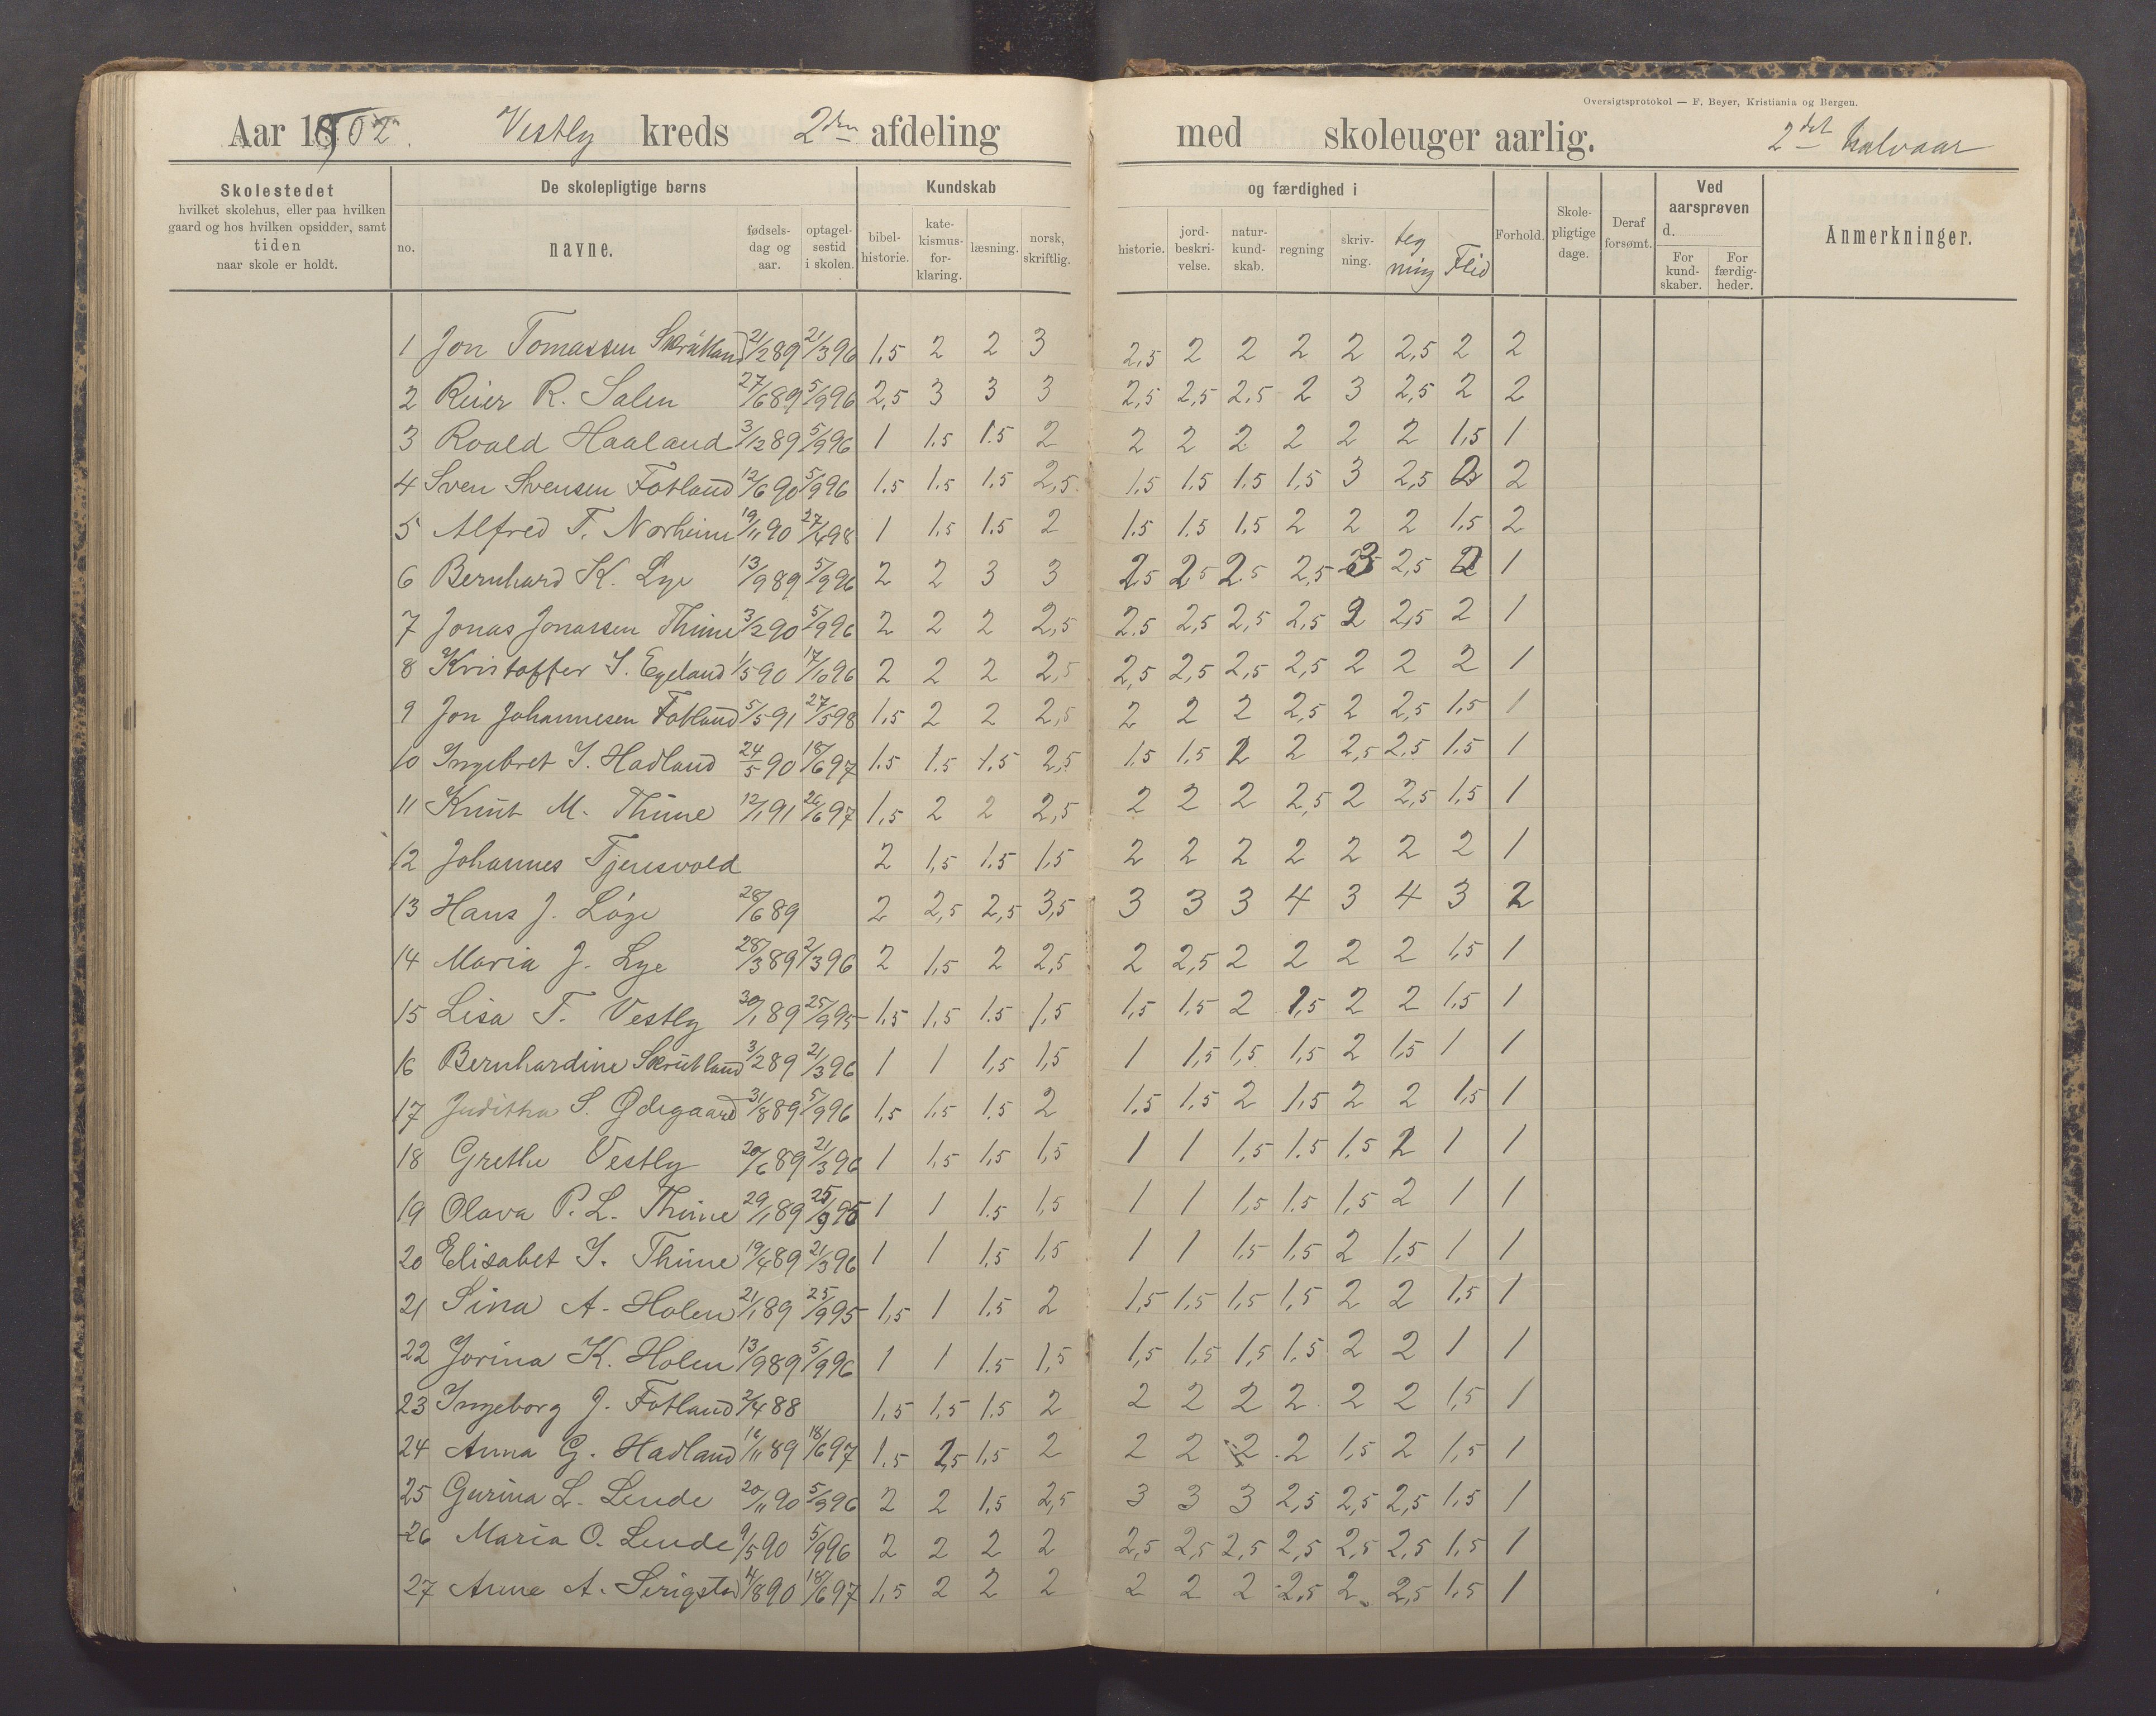 Oversigtsprotokol — F. Beyer, Kristiania og Bergen.
Aar 1902. Vestly kreds 2den afdeling med skoleuger aarlig. 2det halvaar
Skolestedet hvilket skolehus, eller paa hvilken gaard og hos hvilken opsidder, samt tiden naar skole er holdt.
De skolepligtige børns
no. navne. fødselsdag og aar. optagelsestid i skolen.
Kundskab og færdighed i
bibelhistorie. katekismusforklaring. læsning. norsk, skriftlig. historie. jordbeskrivelse. naturkundskab. regning skrivning. tegning Flid
Forhold. Skolepligtige dage. Deraf forsømt.
Ved aarsprøven d.
For kundskaber. For færdigheder.
Anmerkninger.
1 Jon Tomassen Skrütland 21/2 89 21/3 96 1,5 2 2 3 2,5 2 2 2 2 2,5 2 2
2 Reier R. Salen 27/6 89 5/9 96 2,5 3 3 3 2,5 2,5 2,5 2 3 2,5 2 2
3 Roald Haaland 3/12 89 5/9 96 1 1.5 1.5 2 2 2 2 2 2 2 1,5 1
4 Sven Svensen Fotland 12/6 90 5/9 96 1.5 1.5 1.5 2,5 1.5 1.5 1.5 1,5 3 2,5 2 2
5 Alfred T. Norheim 19/11 90 27/4 98 1 1.5 1.5 2 1.5 1.5 1,5 2 2 2 1,5 2
6 Bernhard K. Lye 13/9 89 5/9 96 2 2 3 3 2,5 2,5 2.5 2,5 3 2,5 2 1
7 Jonas Jonassen Thime 3/2 90 5/9 96 2 2 2 2,5 2.5 2,5 2,5 2,5 2 2,5 2 1
8 Kristoffer S. Egeland 1/5 90 17/10 96 2 2 2 2,5 2,5 2,5 2,5 2,5 2 2 2 1
9 Jon Johannesen Fotland 5/5 91 27/5 98 1,5 2 2 2,5 2 2 2 2,5 2 2,5 1,5 1
10 Ingebret I. Hadland 24/5 90 18/6 97 1.5 1.5 1.5 2,5 1.5 1,5 2 2 2,5 2,5 1,5 1
11 Knut M. Thime 12/1 91 26/6 97 1,5 2 2 2,5 2 2 2 2,5 2 2,5 1,5 1
12 Johannes Tjensvold 2 1,5 1.5 1,5 2 2 2 2 2 2 2 1
13 Hans J. Løge 28/6 89 2 2,5 2,5 3,5 3 3 3 4 3 4 3 2
14 Maria J. Lye 28/3 89 2/3 96 2 1,5 2 2,5 2 2,5 2 2 2 2 1,5 1
15 Lisa T. Vestly 30/1 89 25/9 95 1,5 1,5 1.5 1,5 1,5 1,5 2 1,5 2 2 1,5 1
16 Bernhardine Skrütland 3/2 89 21/3 96 1 1 1,5 1,5 1 1,5 1,5 1,5 2 1,5 1 1
17 Juditha S. Ødegaard 31/8 89 5/9 96 1,5 1,5 1.5 2 1.5 1.5 2 1,5 2 2 1,5 1
18 Grethe Vestly 20/6 89 21/3 96 1 1,5 1,5 1,5 1 1 1,5 1.5 1.5 2 1 1
19 Olava P. L. Thime 29/1 89 25/9 95 1 1 1.5 1,5 1 1 1,5 1.5 1,5 2 1 1
20 Elisabet I. Thime 19/4 89 21/3 96 1 1 1,5 1,5 1 1 1,5 1,5 2 1,5 1 1
21 Sina A. Holen 21/1 89 25/9 95 1,5 1 1.5 2 1,5 1,5 1,5 1,5 2 2 1,5 1
22 Jorina K. Holen 13/9 89 5/9 96 1 1 1.5 1,5 1,5 1,5 1,5 1.5 2 2 1 1
23 Ingeborg J. Fotland 2/4 88 1,5 1,5 1.5 2 2 2 2 2 2 2 1,5 1
24 Anna G. Hadland 16/11 89 18/6 97 1.5 1,5 1,5 2 2 2 2 2 1,5 2 1,5 1
25 Gurina L. Lende 20/11 90 5/9 96 2 2 1,5 2,5 3 3 3 2,5 2,5 2,5 1,5 1
26 Maria O. Lende 9/5 90 5/9 96 2 2 2 2 2,5 2,5 2,5 2,5 2,5 2,5 1,5 1
27 Anne A. Serigstad 14/8 90 18/6 97 1,5 2 2 2 2 2 2 2,5 2 2,5 1,5 1